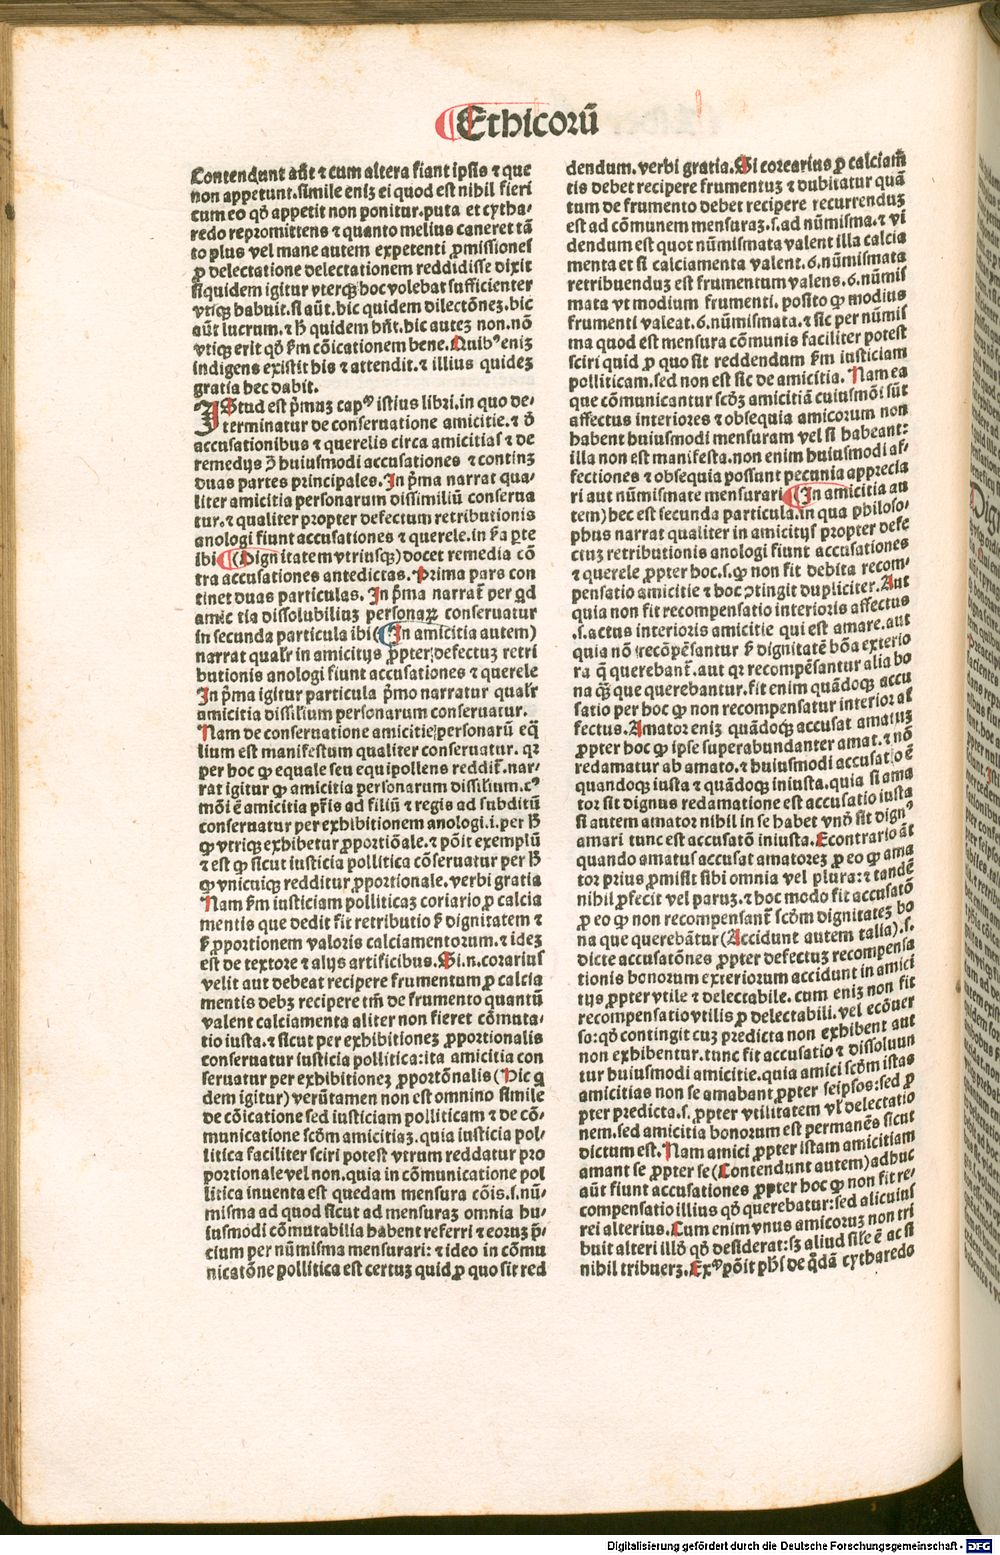 Ethicorū
Contendunt aūt ⁊ cum altera fiant ipsis ⁊ que
non appetunt.simile enīꝫ ei quod est nihil fieri
cum eo qđ appetit non ponitur.puta et cytha-
redo repromittens ⁊ quanto melius caneret tā
to plus vel mane autem expetenti ꝓmissiones
ꝓ delectatione delectationem reddidisse dixit
siquidem igitur vterqꝫ hoc volebat sufficienter
vtiqꝫ habuit.si aūt.hic quidem dilectōneꝫ.hic
aūt lucrum.⁊ h̄ quidem hn̄t.hic auteꝫ non.nō
vtiqꝫ erit qđ ẜm cōicationem bene.Quibꝰ eniꝫ
indigens existit his ⁊ attendit.⁊ illius quideꝫ
gratia hec dabit.
IStud est pīmuꝫ capꝰ istius libri.in quo de-
terminatur de conseruatione amicitie.⁊ đ
accusationibus ⁊ querelis circa amicitias ⁊ de
remedijs ↄ̄ huiusmodi accusationes ⁊ continꝫ
duas partes principales.In pīma narrat qua-
liter amicitia personarum dissimiliū conserua
tur.⁊ qualiter propter defectum retributionis
anologi fiunt accusationes ⁊ querele.in ẜa ꝑte
ibi (Dignitatem vtriusqꝫ) docet remedia cō
tra accusationes antedictas. Prima pars con
tinet duas particulas. In pīma narrat̄ per qd
amic tia dissolubiliuꝫ personaꝝ conseruatur
in secunda particula ibi (In amicitia autem)
narrat qualr̄ in amicitijs ꝓpter defectuꝫ retri
butionis anologi fiunt accusationes ⁊ querele
In pīma igitur particula pīmo narratur qualr̄
amicitia dissilium personarum conseruatur.
Nam de conseruatione amicitie personarū eq̄
lium est manifestum qualiter conseruatur. qꝛ
per hoc ꝙ equale seu equipollens reddit̄.nar-
rat igitur ꝙ amicitia personarum dissilium.cꝰ
mōi ē amicitia pr̄is ad filiū ⁊ regis ad subditū
conseruatur per exhibitionem anologi.i.per h̄
ꝙ vtriqꝫ exhibetur ꝓportiōale.⁊ pōit exemplū
⁊ est ꝙ sicut iusticia pollitica cōseruatur per h̄
ꝙ vnicuiqꝫ redditur ꝓportionale.verbi gratia
Nam ẜm iusticiam polliticaꝫ coriario ꝓ calcia
mentis que dedit fit retributio ẜ dignitatem ⁊
ẜ ꝓportionem valoris calciamentorum.⁊ ideꝫ
est de textore ⁊ alijs artificibus.Si.n.corarius
velit aut debeat recipere frumentum ꝓ calcia
mentis debꝫ recipere tm̄ de frumento quantū
valent calciamenta aliter non fieret cōmuta-
tio iusta.⁊ sicut per exhibitioneꝫ ꝓportionalis
conseruatur iusticia pollitica:ita amicitia con
seruatur per exhibitioneꝫ ꝓportōnalis (Hic q
dem igitur) verūtamen non est omnino simile
de cōicatione sed iusticiam polliticam ⁊ de cō-
municatione scōm amicitiaꝫ.quia iusticia pol-
litica faciliter sciri potest vtrum reddatur pro
portionale vel non.quia in cōmunicatione pol
litica inuenta est quedam mensura cōis.s.nū-
misma ad quod sicut ad mensuraꝫ omnia hu-
iusmodi cōmutabilia habent referri ⁊ eoruꝫ p̄-
cium per nūmisma mensurari: ⁊ ideo in cōmu
nicatōne pollitica est certuꝫ quid ꝓ quo sit red
dendum.verbi gratia.Si corearius ꝓ calciam̄
tis debet recipere frumentuꝫ ⁊ dubitatur quā
tum de frumento debet recipere recurrenduꝫ
est ad cōmunem mensuraꝫ.s.ad nūmisma.⁊ vi
dendum est quot nūmismata valent illa calcia
menta et si calciamenta valent.6.nūmismata
retribuenduꝫ est frumentum valens.6.nūmis
mata vt modium frumenti. posito ꝙ modius
frumenti valeat.6.nūmismata.⁊ sic per nūmis
ma quod est mensura cōmunis faciliter potest
sciri quid ꝓ quo sit reddendum ẜm iusticiam
polliticam.sed non est sic de amicitia. Nam ea
que cōmunicantur scōꝫ amicitiā cuiusmōi sūt
affectus interiores ⁊ obsequia amicorum non
habent huiusmodi mensuram vel si habeant:
illa non est manifesta.non enim huiusmodi af-
fectiones ⁊ obsequia possunt pecunia apprecia
ri aut nūmismate mensurari (In amicitia au
tem) hec est secunda particula.in qua philoso-
phus narrat qualiter in amicitijs propter defe
ctuꝫ retributionis anologi fiunt accusationes
⁊ querele ꝓpter hoc.s.ꝙ non fit debita recom-
pensatio amicitie ⁊ hoc ↄtingit dupliciter.Aut
quia non fit recompensatio interioris affectus
.s.actus interioris amicitie qui est amare.aut
quia nō recōpēsantur ẜ dignitatē bōa exterio
ra q̄ querebant̄.aut qꝛ recompēsantur alia bo
na qꝫ̄ que querebantur.fit enim quādoqꝫ accu
satio per hoc ꝙ non recompensatur interior af
fectus.Amator eniꝫ quādoqꝫ accusat amatuꝫ
ꝓpter hoc ꝙ ipse superabundanter amat.⁊ nō
redamatur ab amato.⁊ huiusmodi accusatio ē
quandoqꝫ iusta ⁊ quādoqꝫ iniusta.quia si ama
tor sit dignus redamatione est accusatio iusta
si autem amator nihil in se habet vnđ sit dignꝰ
amari tunc est accusatō iniusta.Econtrario āt
quando amatus accusat amatoreꝫ ꝓ eo ꝙ ama
tor prius ꝓmisit sibi omnia vel plura:⁊ tandē
nihil ꝓfecit vel paruꝫ.⁊ hoc modo fit accusatō
ꝓ eo ꝙ non recompensant̄ scōm dignitateꝫ bo
na que querebātur (Accidunt autem talia).s.
dicte accusatōnes ꝓpter defectuꝫ recompensa
tionis bonorum exteriorum accidunt in amici
tijs ꝓpter vtile ⁊ delectabile. cum eniꝫ non fit
recompensatio vtilis ꝓ delectabili.vel ecōuer
so:qđ contingit cuꝫ predicta non exhibent aut
non exhibentur.tunc fit accusatio ⁊ dissoluun
tur huiusmodi amicitie.quia amici scōm istas
amicitias non se amabant ꝓpter seipsos:sed ꝓ
pter predicta.s.ꝓpter vtilitatem vl̄ delectatio
nem.sed amicitia bonorum est permanēs sicut
dictum est.Nam amici ꝓpter istam amicitiam
amant se ꝓpter se (Contendunt autem) adhuc
aūt fiunt accusationes ꝓpter hoc ꝙ non fit re-
compensatio illius qđ querebatur:sed alicuius
rei alterius.Cum enim vnus amicoruꝫ non tri
buit alteri illđ qđ desiderat:sꝫ aliud sil̄e ē ac si
nihil tribuerꝫ.Exꝰ pōit ph̄s de q̄dā cytharedo
Digitalisierung gefördert durch die Deutsche Forschungsgemeinschaft - DFG